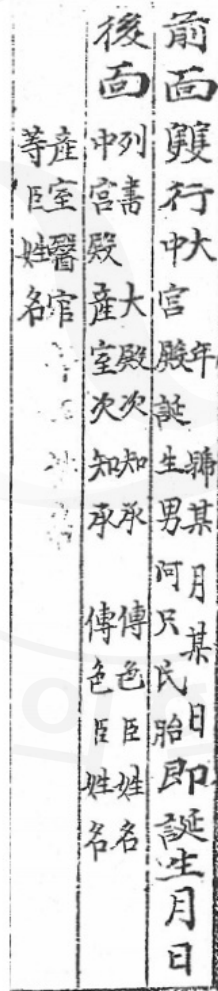 前面雙行
大年號某月某日
中宮殿誕生男阿只民胎
即誕生月日
後面
列書大殿次知承傳色臣姓名
中宮殿産室次知承傳色臣姓名
産室醫官
等臣姓名